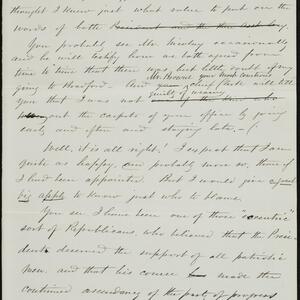 thought I knew just what value to put on the
words of both President and the
You probably see Mr. Newley occasionally
and he will testify how as both agreed from
time to time that there was but little doubt of my
going to Branford. And your chief Clerk will tell
Mr Browne your most cautious
you that I was not of the men who
guilty of wearing
out the carpets of your office by going
early and often and staying late.
Well, it is all right! I suspect that I am
quite as happy, and probably more so, than if
I had been appointed. But I would give a good
big apple to know just who to blame.
You see I have been one of those "eccentric"
sort of Republicans, who believed that the Presi-
dent deserved the support of all patriotic
men, and that his course made the
continued ascendancy of the party of progress